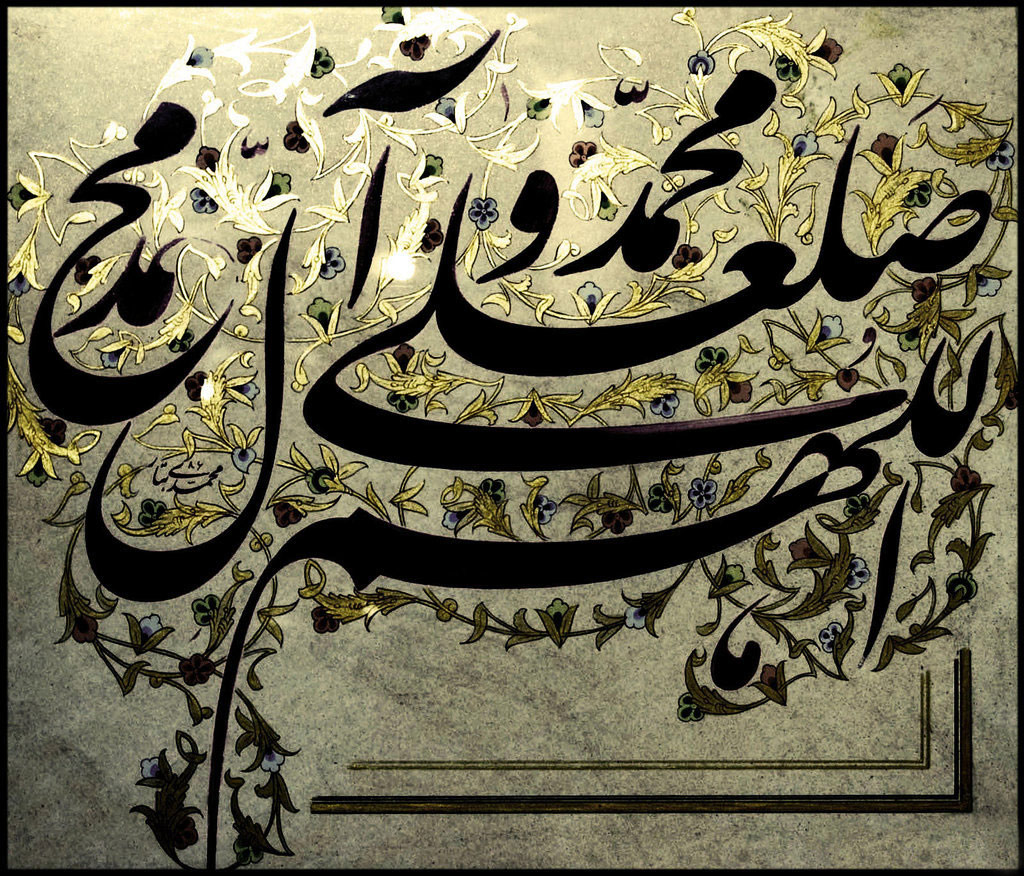 اللهم
صل علی محمد و آل محمد